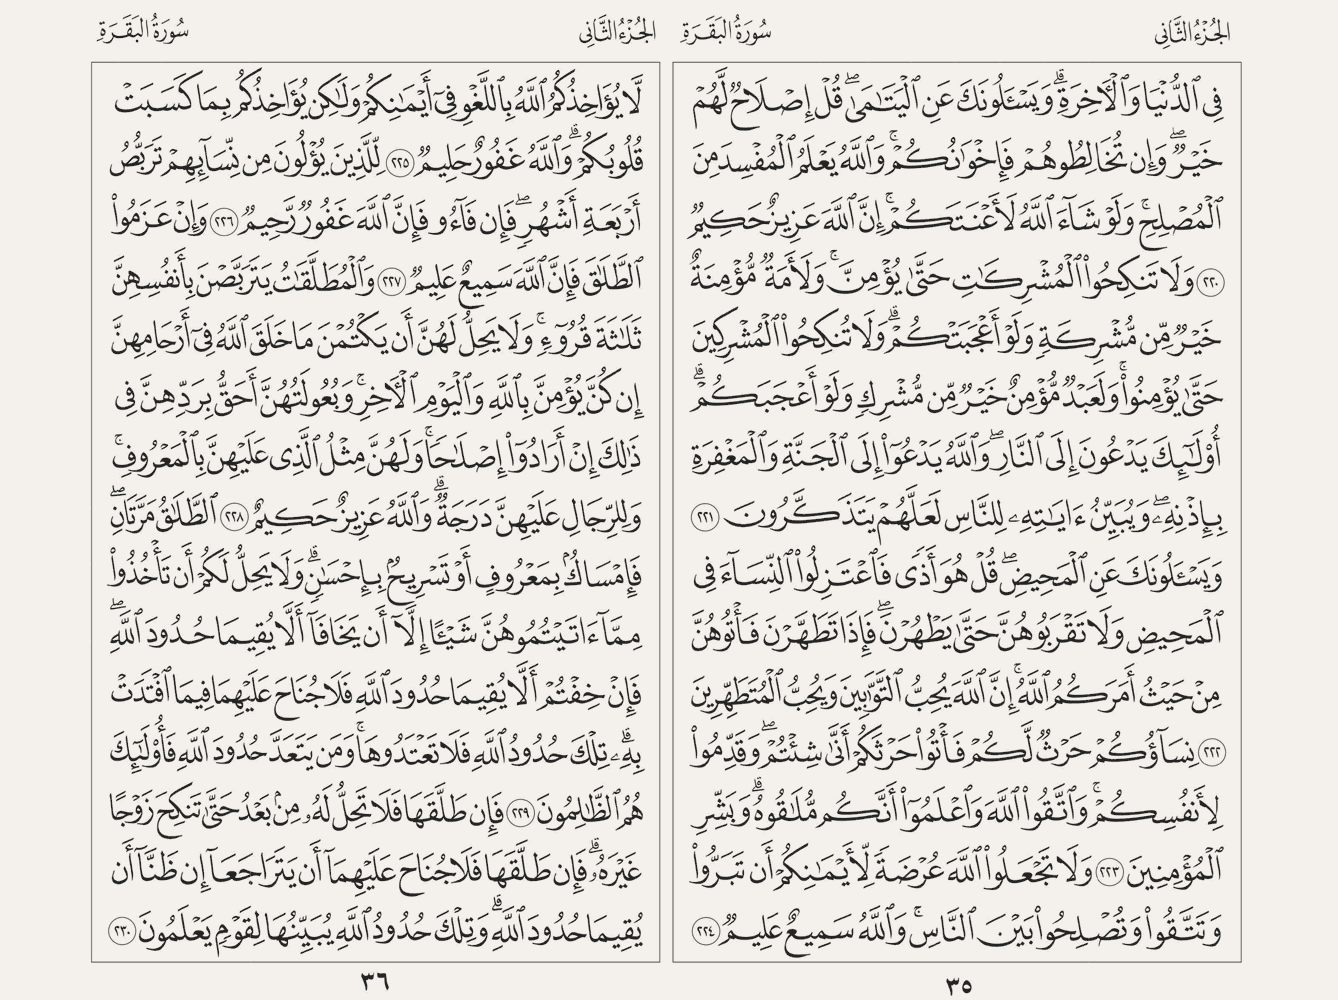 الجُزْءُ الثَّانِى
سُورَةُ البَقَرَةِ
فِى ٱلدُّنْيَا وَٱلْأَخِرَةِ ۗ وَيَسْـَٔلُونَكَ عَنِ ٱلْيَتَـٰمَىٰ ۖ قُلْ إِصْلَاحٌ لَّهُمْ
خَيْرٌ ۖ وَإِن تُخَالِطُوهُمْ فَإِخْوَٰنُكُمْ ۚ وَٱللَّهُ يَعْلَمُ ٱلْمُفْسِدَ مِنَ
ٱلْمُصْلِحِ ۚ وَلَوْ شَآءَ ٱللَّهُ لَأَعْنَتَكُمْ ۚ إِنَّ ٱللَّهَ عَزِيزٌ حَكِيمٌ
٢٢٠ وَلَا تَنكِحُوا۟ ٱلْمُشْرِكَـٰتِ حَتَّىٰ يُؤْمِنَّ ۚ وَلَأَمَةٌ مُّؤْمِنَةٌ
خَيْرٌ مِّن مُّشْرِكَةٍ وَلَوْ أَعْجَبَتْكُمْ ۗ وَلَا تُنكِحُوا۟ ٱلْمُشْرِكِينَ
حَتَّىٰ يُؤْمِنُوا۟ ۚ وَلَعَبْدٌ مُّؤْمِنٌ خَيْرٌ مِّن مُّشْرِكٍ وَلَوْ أَعْجَبَكُمْ ۗ
أُو۟لَـٰٓئِكَ يَدْعُونَ إِلَى ٱلنَّارِ ۖ وَٱللَّهُ يَدْعُوٓا۟ إِلَى ٱلْجَنَّةِ وَٱلْمَغْفِرَةِ
بِإِذْنِهِۦ ۖ وَيُبَيِّنُ ءَايَـٰتِهِۦ لِلنَّاسِ لَعَلَّهُمْ يَتَذَكَّرُونَ ٢٢١
وَيَسْـَٔلُونَكَ عَنِ ٱلْمَحِيضِ ۖ قُلْ هُوَ أَذًى فَٱعْتَزِلُوا۟ ٱلنِّسَآءَ فِى
ٱلْمَحِيضِ وَلَا تَقْرَبُوهُنَّ حَتَّىٰ يَطْهُرْنَ ۖ فَإِذَا تَطَهَّرْنَ فَأْتُوهُنَّ
مِنْ حَيْثُ أَمَرَكُمُ ٱللَّهُ ۚ إِنَّ ٱللَّهَ يُحِبُّ ٱلتَّوَّٰبِينَ وَيُحِبُّ ٱلْمُتَطَهِّرِينَ
٢٢٢ نِسَآؤُكُمْ حَرْثٌ لَّكُمْ فَأْتُوا۟ حَرْثَكُمْ أَنَّىٰ شِئْتُمْ ۖ وَقَدِّمُوا۟
لِأَنفُسِكُمْ ۚ وَٱتَّقُوا۟ ٱللَّهَ وَٱعْلَمُوٓا۟ أَنَّكُم مُّلَـٰقُوهُ ۗ وَبَشِّرِ
ٱلْمُؤْمِنِينَ ٢٢٣ وَلَا تَجْعَلُوا۟ ٱللَّهَ عُرْضَةً لِّأَيْمَـٰنِكُمْ أَن تَبَرُّوا۟
وَتَتَّقُوا۟ وَتُصْلِحُوا۟ بَيْنَ ٱلنَّاسِ ۗ وَٱللَّهُ سَمِيعٌ عَلِيمٌ ٢٢٤
٣٥
الجُزْءُ الثَّانِى
سُورَةُ البَقَرَةِ
لَّا يُؤَاخِذُكُمُ ٱللَّهُ بِٱللَّغْوِ فِىٓ أَيْمَـٰنِكُمْ وَلَـٰكِن يُؤَاخِذُكُم بِمَا كَسَبَتْ
قُلُوبُكُمْ ۗ وَٱللَّهُ غَفُورٌ حَلِيمٌ ٢٢٥ لِّلَّذِينَ يُؤْلُونَ مِن نِّسَآئِهِمْ تَرَبُّصُ
أَرْبَعَةِ أَشْهُرٍ ۖ فَإِن فَآءُو فَإِنَّ ٱللَّهَ غَفُورٌ رَّحِيمٌ ٢٢٦ وَإِنْ عَزَمُوا۟
ٱلطَّلَـٰقَ فَإِنَّ ٱللَّهَ سَمِيعٌ عَلِيمٌ ٢٢٧ وَٱلْمُطَلَّقَـٰتُ يَتَرَبَّصْنَ بِأَنفُسِهِنَّ
ثَلَـٰثَةَ قُرُوٓءٍ ۚ وَلَا يَحِلُّ لَهُنَّ أَن يَكْتُمْنَ مَا خَلَقَ ٱللَّهُ فِىٓ أَرْحَامِهِنَّ
إِن كُنَّ يُؤْمِنَّ بِٱللَّهِ وَٱلْيَوْمِ ٱلْأَخِرِ ۚ وَبُعُولَتُهُنَّ أَحَقُّ بِرَدِّهِنَّ فِى
ذَٰلِكَ إِنْ أَرَادُوٓا۟ إِصْلَـٰحًا ۚ وَلَهُنَّ مِثْلُ ٱلَّذِى عَلَيْهِنَّ بِٱلْمَعْرُوفِ ۚ
وَلِلرِّجَالِ عَلَيْهِنَّ دَرَجَةٌ ۗ وَٱللَّهُ عَزِيزٌ حَكِيمٌ ٢٢٨ ٱلطَّلَـٰقُ مَرَّتَانِ ۖ
فَإِمْسَاكٌۢ بِمَعْرُوفٍ أَوْ تَسْرِيحٌۢ بِإِحْسَـٰنٍ ۗ وَلَا يَحِلُّ لَكُمْ أَن تَأْخُذُوا۟
مِمَّآ ءَاتَيْتُمُوهُنَّ شَيْـًٔا إِلَّآ أَن يَخَافَآ أَلَّا يُقِيمَا حُدُودَ ٱللَّهِ ۖ
فَإِنْ خِفْتُمْ أَلَّا يُقِيمَا حُدُودَ ٱللَّهِ فَلَا جُنَاحَ عَلَيْهِمَا فِيمَا ٱفْتَدَتْ
بِهِۦ ۗ تِلْكَ حُدُودُ ٱللَّهِ فَلَا تَعْتَدُوهَا ۚ وَمَن يَتَعَدَّ حُدُودَ ٱللَّهِ فَأُو۟لَـٰٓئِكَ
هُمُ ٱلظَّـٰلِمُونَ ٢٢٩ فَإِن طَلَّقَهَا فَلَا تَحِلُّ لَهُۥ مِنۢ بَعْدُ حَتَّىٰ تَنكِحَ زَوْجًا
غَيْرَهُۥ ۗ فَإِن طَلَّقَهَا فَلَا جُنَاحَ عَلَيْهِمَآ أَن يَتَرَاجَعَآ إِن ظَنَّآ أَن
يُقِيمَا حُدُودَ ٱللَّهِ ۗ وَتِلْكَ حُدُودُ ٱللَّهِ يُبَيِّنُهَا لِقَوْمٍ يَعْلَمُونَ ٢٣٠
٣٦